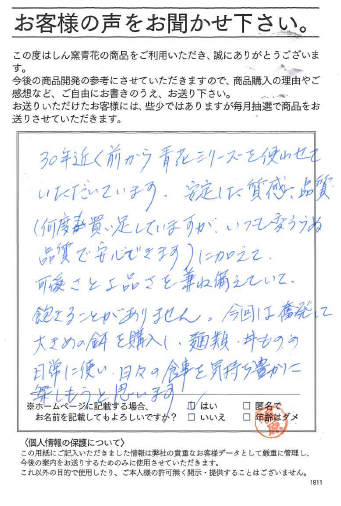 お客様の声をお聞かせ下さい。
この度はしん窯青花の商品をご利用いただき、誠にありがとうございま
す。
今後の商品開発の参考にさせていただきますので、商品購入の理由やご
感想など、ご自由にお書きのうえ、お送り下さい。
お送りいただけたお客様には、些少ではありますが毎月抽選で商品をお
送りさせていただきます。
30年近く前から青花シリーズを使わせて
いただいています。安定した質感、品質
(何度も買い足していますが、いつも変らぬ
品質で安心できます)に加えて、
可愛さと上品さを兼ね備えていて、
飽きることがありません。今回は奮発して
大きめの鉢を購入し、麺類・丼ものの
日常に使い、日々の食事を気持ち豊かに
楽しもうと思います
※ホームページに記載する場合、 □ はい □ 匿名で
お名前を記載してもよろしいですか? □ いいえ □ 年齢はダメ
〈個人情報の保護について〉
この用紙にご記入いただきました情報は弊社の貴重なお客様データとして厳重に管理し、
今後の案内をお送りするためのみに使用させていただきます。
これ以外の目的で使用したり、ご本人様の許可無く開示・提供することはございません。
1811